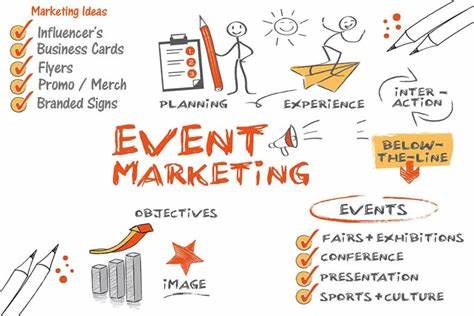 Marketing Ideas
Influencer's
Business Cards
Flyers
Promo / Merch
Branded Signs
1
2
3
PLANNING
EXPERIENCE
INTER-
ACTION
EVENT
MARKETING
BELOW-
THE-LINE
OBJECTIVES
IMAGE
EVENTS
FAIRS + EXHIBITIONS
CONFERENCE
PRESENTATION
SPORTS + CULTURE